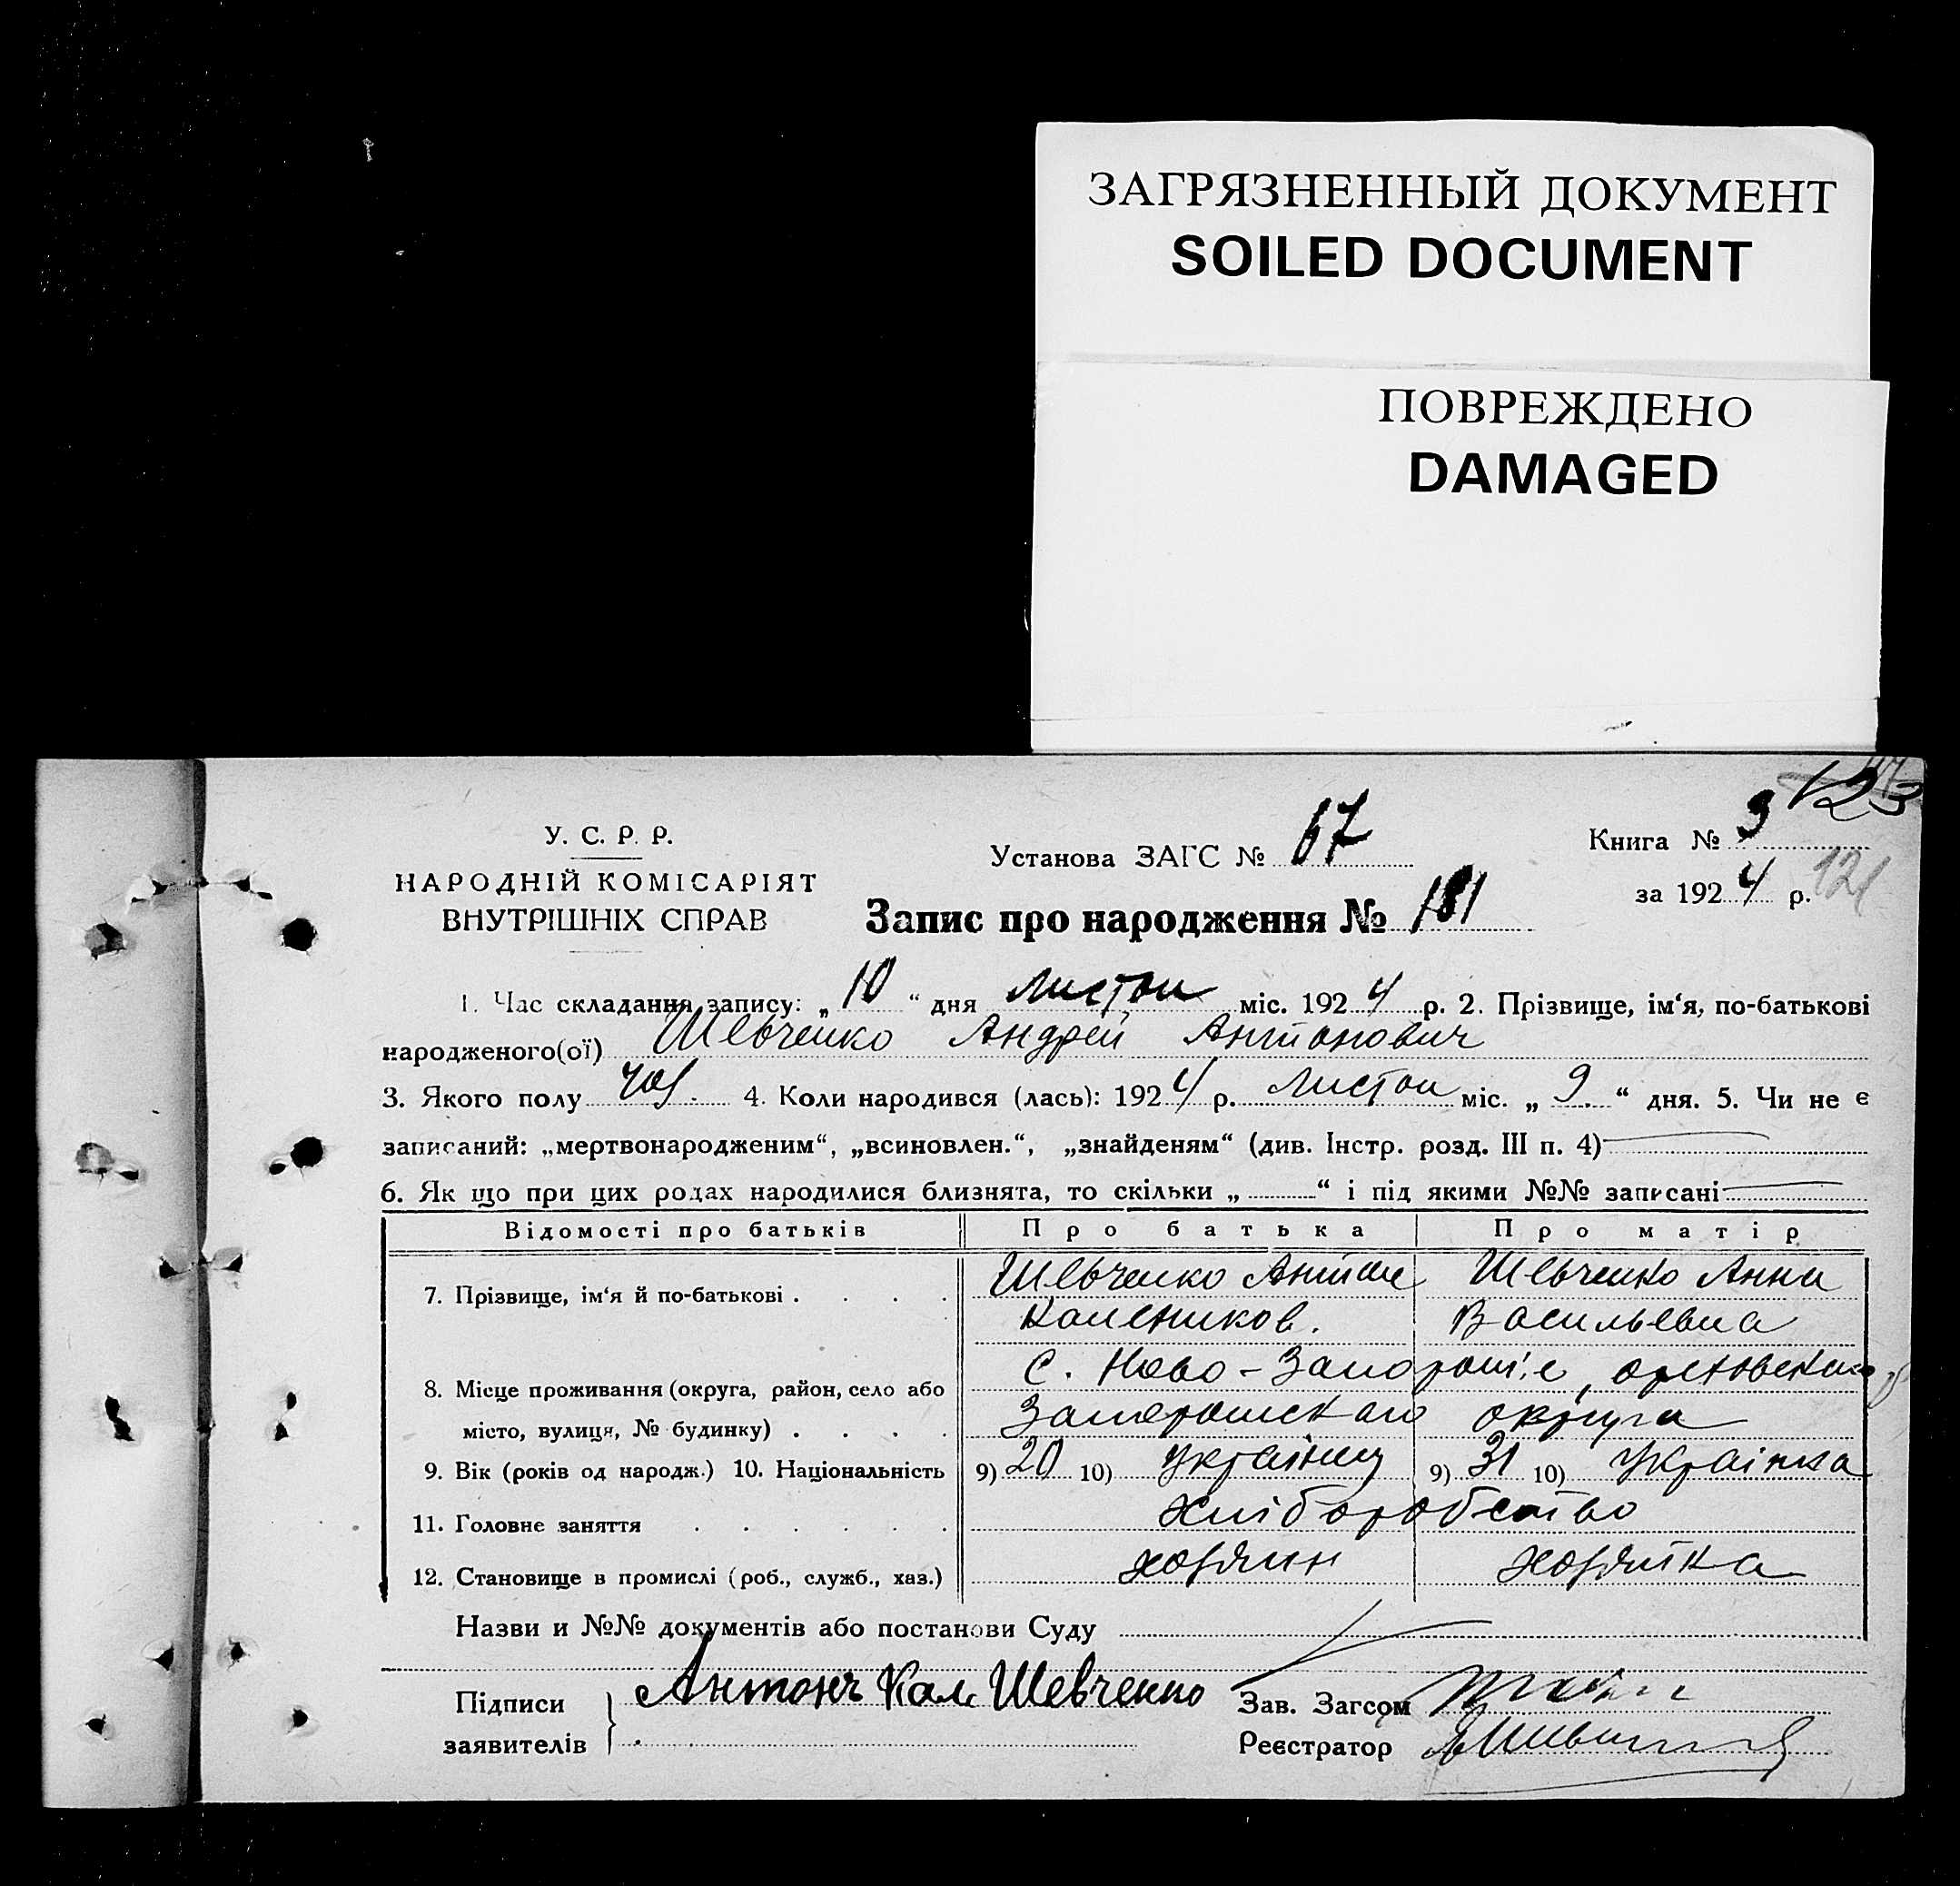 ЗАГРЯЗНЕННЫЙ ДОКУМЕНТ
SOILED DOCUMENT
ПОВРЕЖДЕНО
DAMAGED
123
У. С. Р. Р.
НАРОДНІЙ КОМІСАРІЯТ
ВНУТРІШНІХ СПРАВ
Установа ЗАГС № 67
Книга № 3
за 1924 р.
Запис про народження № 181
1. Час складання запису: „10“ дня листоп міс. 1924 р. 2. Прізвище, ім‘я, по-батькові
народженого(ої) Шевченко Андрей Антонович
3. Якого полу чол. 4. Коли народився (лась): 1924 р. листоп міс. „9.“ дня. 5. Чи не є
записаний: „мертвонародженим“, „всиновлен.“, „знайденям“ (див. Інстр. розд. III п. 4)
6. Як що при цих родах народилися близнята, то скільки „ “ і під якими №№ записані
Відомості про батьків Про батька Про матір
7. Прізвище, ім‘я й по-батькові . . . . Шевченко Антон Шевченко Анна
Калеников. Васильевна
8. Місце проживання (округа, район, село або с. Ново-Запорож'є, ореховского
місто, вулиця, № будинку) . . . . Запорожского округа
9. Вік (років од народж.) 10. Національність 9) 20 10) Українец 9) 31 10) Українка
11. Головне заняття . . . . . . Хліборобство
12. Становище в промислі (роб., служб., хаз.) хозяин хозяйка
Назви и №№ документів або постанови Суду
Підписи Антонъ Кал. Шевченко Зав. Загсом
заявителів Реєстратор